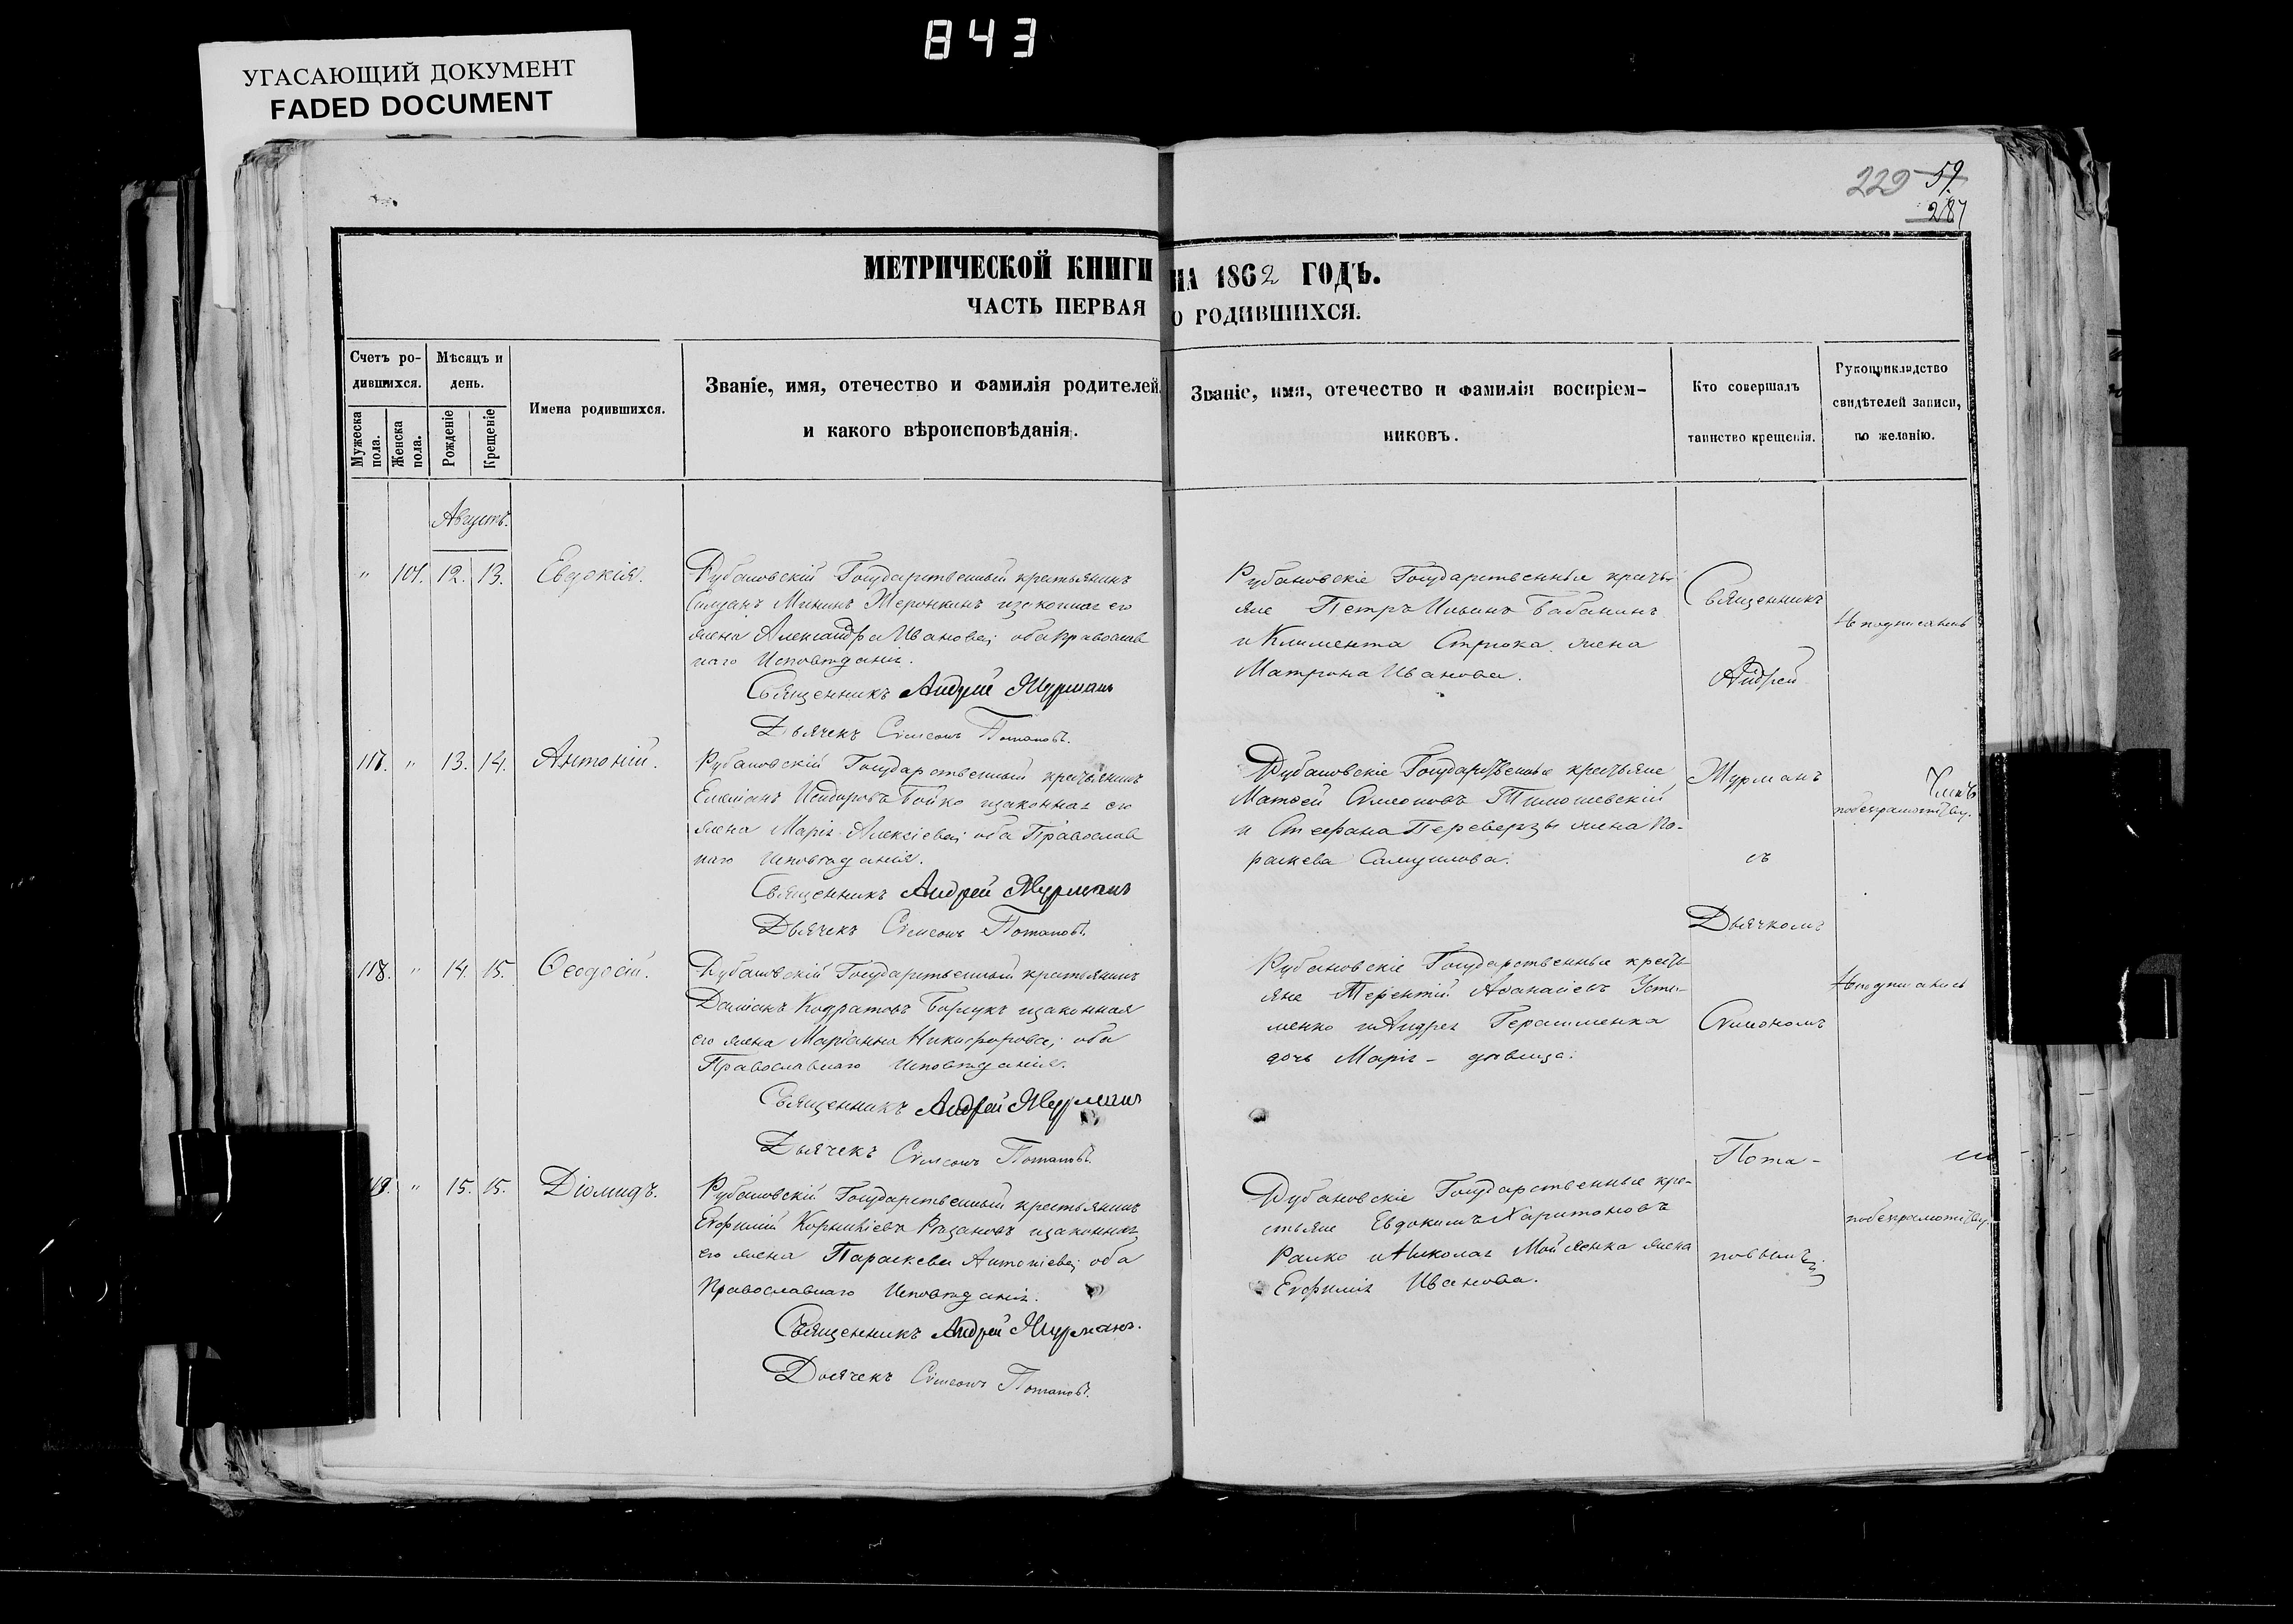 843
УГАСАЮЩИЙ ДОКУМЕНТ
FADED DOCUMENT
229 59.
287
МЕТРИЧЕСКОЙ КНИГИ НА 1862 ГОДЪ.
ЧАСТЬ ПЕРВАЯ О РОДИВШИХСЯ.
Счетъ ро-
дившихся.
Мужеска пола.
Женска пола.
Мѣсяцъ и
день.
Рожденіе
Крещеніе
Имена родившихся.
Званіе, имя, отечество и фамилія родителей,
и какого вѣроисповѣданія.
Званіе, имя, отечество и фамилія воспріем-
никовъ.
Кто совершалъ
таинство крещенія.
Рукоприкладство
свидѣтелей записи,
по желанію.
Августъ.
" 101. 12. 13. Евдокія.
Рубановскій Государственный крестьянинъ
Мининъ изаконная его
жена Александра Иванова; оба православ
наго Исповѣданія.
Священникъ Андрей Журманъ
Дьячекъ Сѵмеонъ Потаповъ.
Рубановскіе Государственные кресть-
яне Петръ Ильинъ Бабанинъ
и Климента Стрюка жена
Матрона Иванова.
Священникъ
Андрей
117. " 13. 14. Антоній.
Рубановскій Государственный крестьянинъ
Исидоровъ Бойко изаконная его
жена Марія Алексіева; оба Православ
наго Исповѣданія.
Священникъ Андрей Журманъ
Дьячекъ Сѵмеонъ Потаповъ.
Рубановскіе Государственные крестьяне
Матѳей Сѵмеоновъ Тимошевскій
и Стефана Переверзы жена Па-
раскева Самуилова.
Журманъ
съ
Дьячкомъ
118. " 14. 15. Ѳеодосій.
Рубановскій Государственный крестьянинъ
Даміанъ Кодратовъ Бирукъ изаконная
его жена Маріанна Никифорова; оба
Православнаго Исповѣданія.
Священникъ Андрей Журманъ
Дьячекъ Сѵмеонъ Потаповъ.
Рубановскіе Государственные кресть-
яне Терентій Аѳанасіевъ Усти-
менко и Андрея Герасименка
дочь Марія – дѣвица.
Сѵмеономъ
Пота-
119. " 15. 15. Діомидъ.
Рубановскій Государственный крестьянинъ
Евфимій Корниліевъ Рязановъ изаконная
его жена Параскева Антоніева; оба
Православнаго Исповѣданія.
Священникъ Андрей Журманъ.
Дьячекъ Сѵмеонъ Потаповъ.
Рубановскіе Государственные кре-
стьяне Евдокимъ Харитоновъ
Ралко и Николая Мойсенка жена
Евфимія Иванова.
повымъ